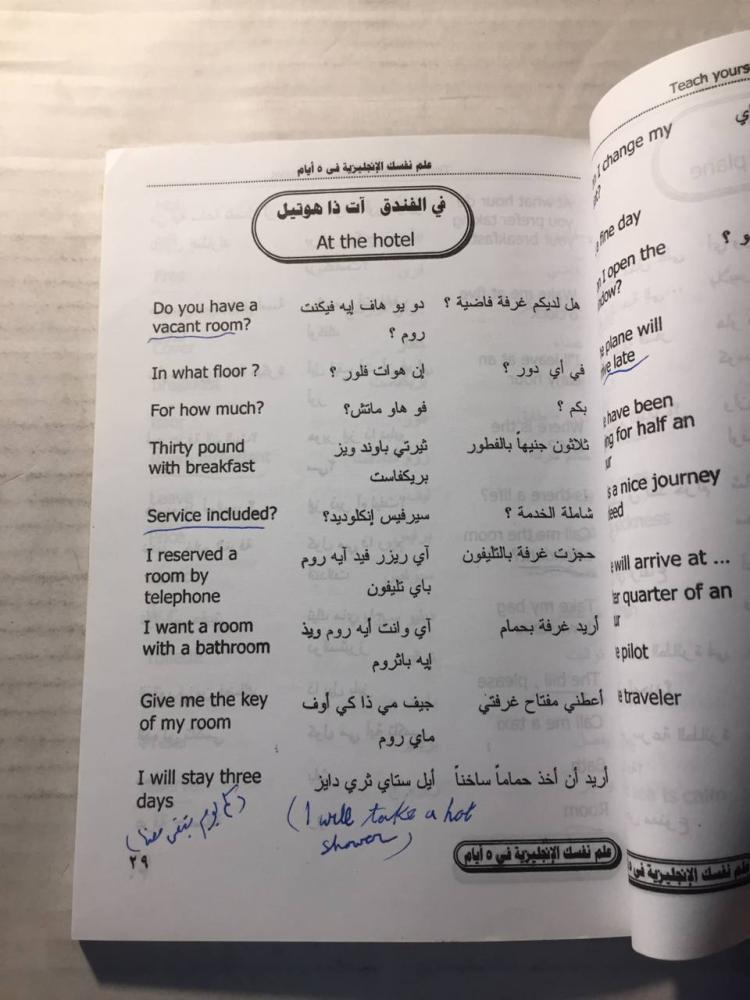 علم نفسك الإنجليزية فى ٥ أيام
في الفندق آت ذا هوتيل
At the hotel
Do you have a vacant room?
دو يو هاف إيه فيكنت روم ؟
هل لديكم غرفة فاضية ؟
In what floor ?
إن هوات فلور ؟
في أي دور ؟
For how much?
فو هاو ماتش؟
بكم ؟
Thirty pound with breakfast
ثيرتي باوند ويز بريكفاست
ثلاثون جنيهاً بالفطور
Service included?
سيرفيس إنكلوديد؟
شاملة الخدمة ؟
I reserved a room by telephone
آي ريزر فيد آيه روم باي تليفون
حجزت غرفة بالتليفون
I want a room with a bathroom
آي وانت أيه روم ويذ إيه باثروم
أريد غرفة بحمام
Give me the key of my room
جيف مي ذا كي أوف ماي روم
أعطني مفتاح غرفتي
I will stay three days
أيل ستاي ثري دايز
أريد أن أخذ حماماً ساخناً
(I will take a hot
shower)
٢٩
علم نفسك الإنجليزية فى ٥ أيام
Teach yours
I change my
fine day
I open the
plane will
late
have been
for half an
a nice journey
will arrive at ...
quarter of an
pilot
traveler
علم نفسك الإنجليزية فى ٥